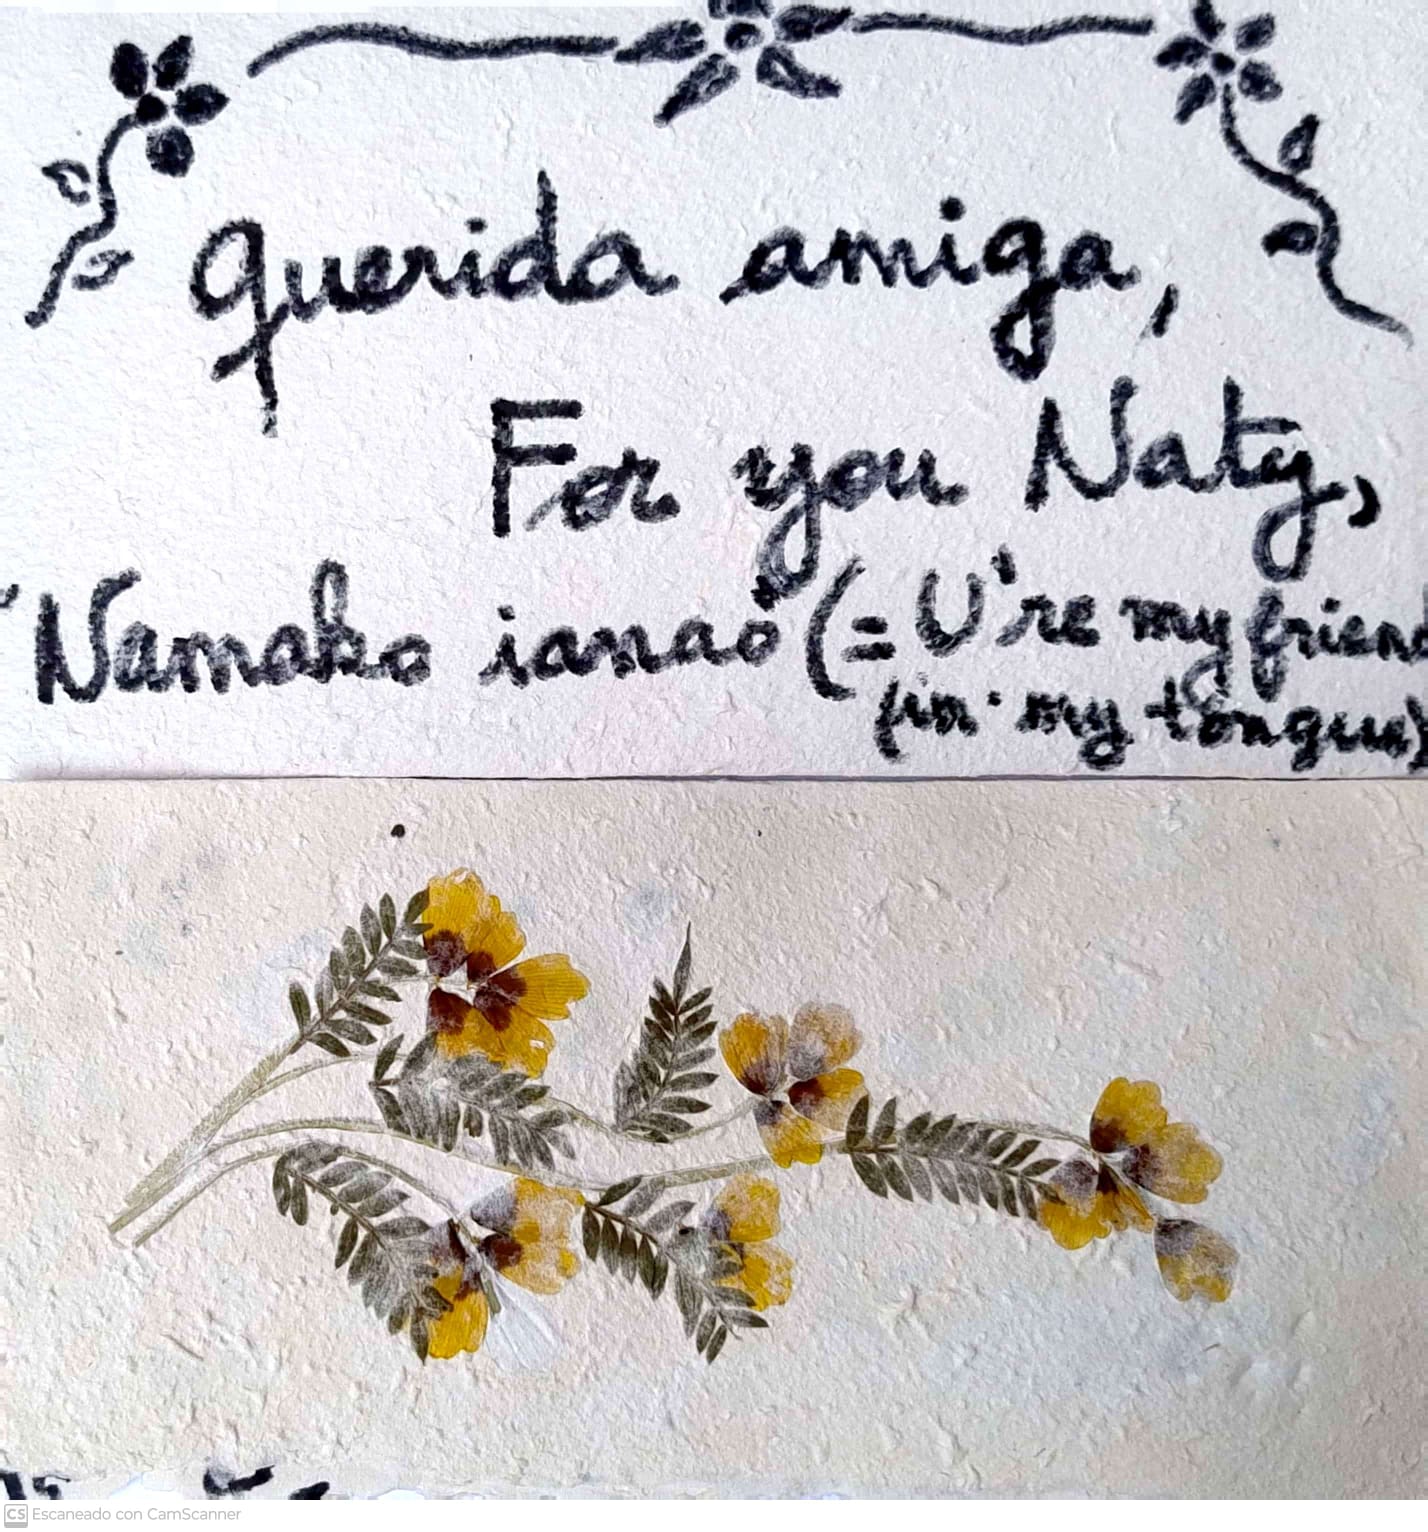 Querida amiga,
For you Naty,
"Namako ianao" (= U're my friend
(in my tongue)
CS Escaneado con CamScanner